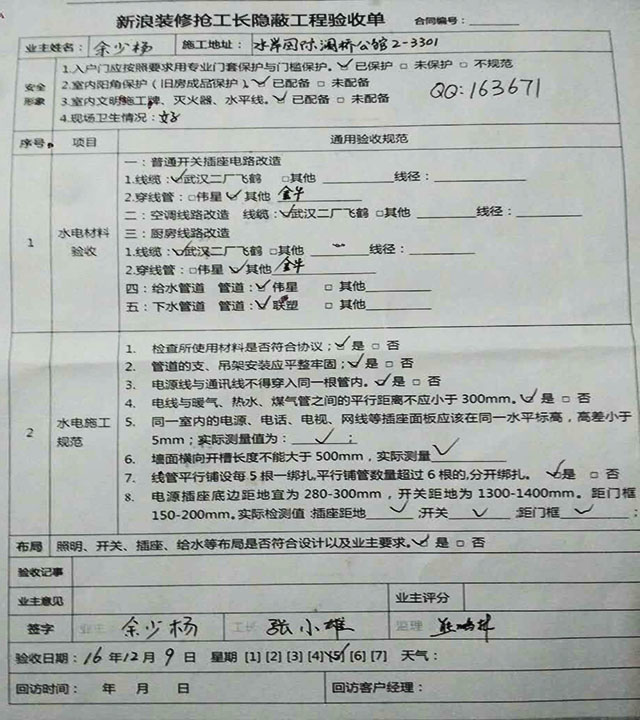 新浪装修抢工长隐蔽工程验收单 合同编号:
业主姓名: 余少杨 施工地址: 水岸国际澜桥公馆2-3301
安全形象
1.入户门应按照要求用专业门套保护与门槛保护。☑已保护 □ 未保护 □ 不规范
2.室内阳角保护（旧房成品保护）。☑已配备 □ 未配备
3.室内文明施工牌、灭火器、水平线。☑已配备 □ 未配备
4.现场卫生情况: 好
QQ:163671
序号 项目 通用验收规范
1 水电材料验收
一：普通开关插座电路改造
1.线缆：☑武汉二厂飞鹤 □其他 线径：
2.穿线管：□伟星 ☑其他 金牛
二：空调线路改造 线缆：☑武汉二厂飞鹤 □其他 线径：
三：厨房线路改造
1.线缆：☑武汉二厂飞鹤 □其他 线径：
2.穿线管：□伟星 ☑其他 金牛
四：给水管道 管道：☑伟星 □ 其他
五：下水管道 管道：☑联塑 □ 其他
2 水电施工规范
1. 检查所使用材料是否符合协议；☑是 □ 否
2. 管道的支、吊架安装应平整牢固；☑是 □ 否
3. 电源线与通讯线不得穿入同一根管内。☑是 □ 否
4. 电线与暖气、热水、煤气管之间的平行距离不应小于300mm。☑是 □ 否
5. 同一室内的电源、电话、电视、网线等插座面板应该在同一水平标高，高差小于
5mm；实际测量值为： ✓ ；
6. 墙面横向开槽长度不能大于500mm，实际测量 ✓
7. 线管平行铺设每5根一绑扎,平行铺管数量超过6根的,分开绑扎。 ☑是 □ 否
8. 电源插座底边距地宜为280-300mm，开关距地为1300-1400mm。距门框
150-200mm。实际检测值:插座距地 ✓ ;开关 ✓ ;距门框 ✓ ;
布局 照明、开关、插座、给水等布局是否符合设计以及业主要求。☑是 □ 否
验收记事
业主意见 业主评分
签字 业主: 余少杨 工长 张小雄 监理
验收日期: 16年12月9日 星期 [1] [2] [3] [4] [5] [6] [7] 天气：
回访时间： 年 月 日 回访客户经理：